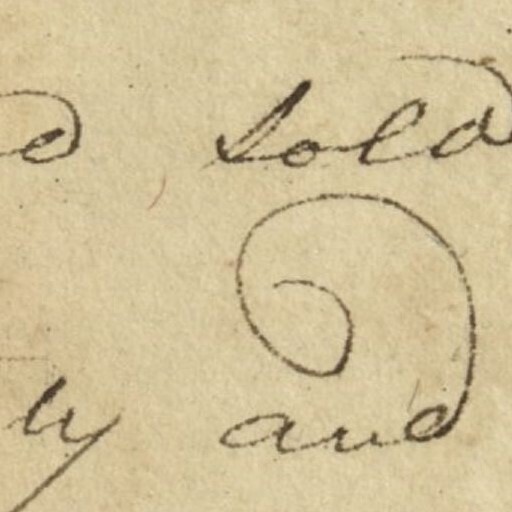 d sold
ly and